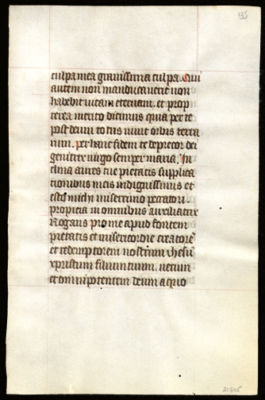 culpa mea grauissima culpa. Qui
autem non manducauerit non
habebit uitam eternam. et prop
terea merito dicimus quia per te
post deum totus uiuit orbis terra
rum. per hanc fidem te deprecor dei
genitrix uirgo semper maria. In
clina aures tue pietatis supplica
tionibus meis indignissimis et
esto michi miserrimo peccatori
propicia in omnibus auxiliatrix
Rogans pro me apud fontem
pietatis et misericordie creatorē
et redemptorem nostrum ihesu
xpristum filium tuum. uerum
et omnipotentem deum a quo